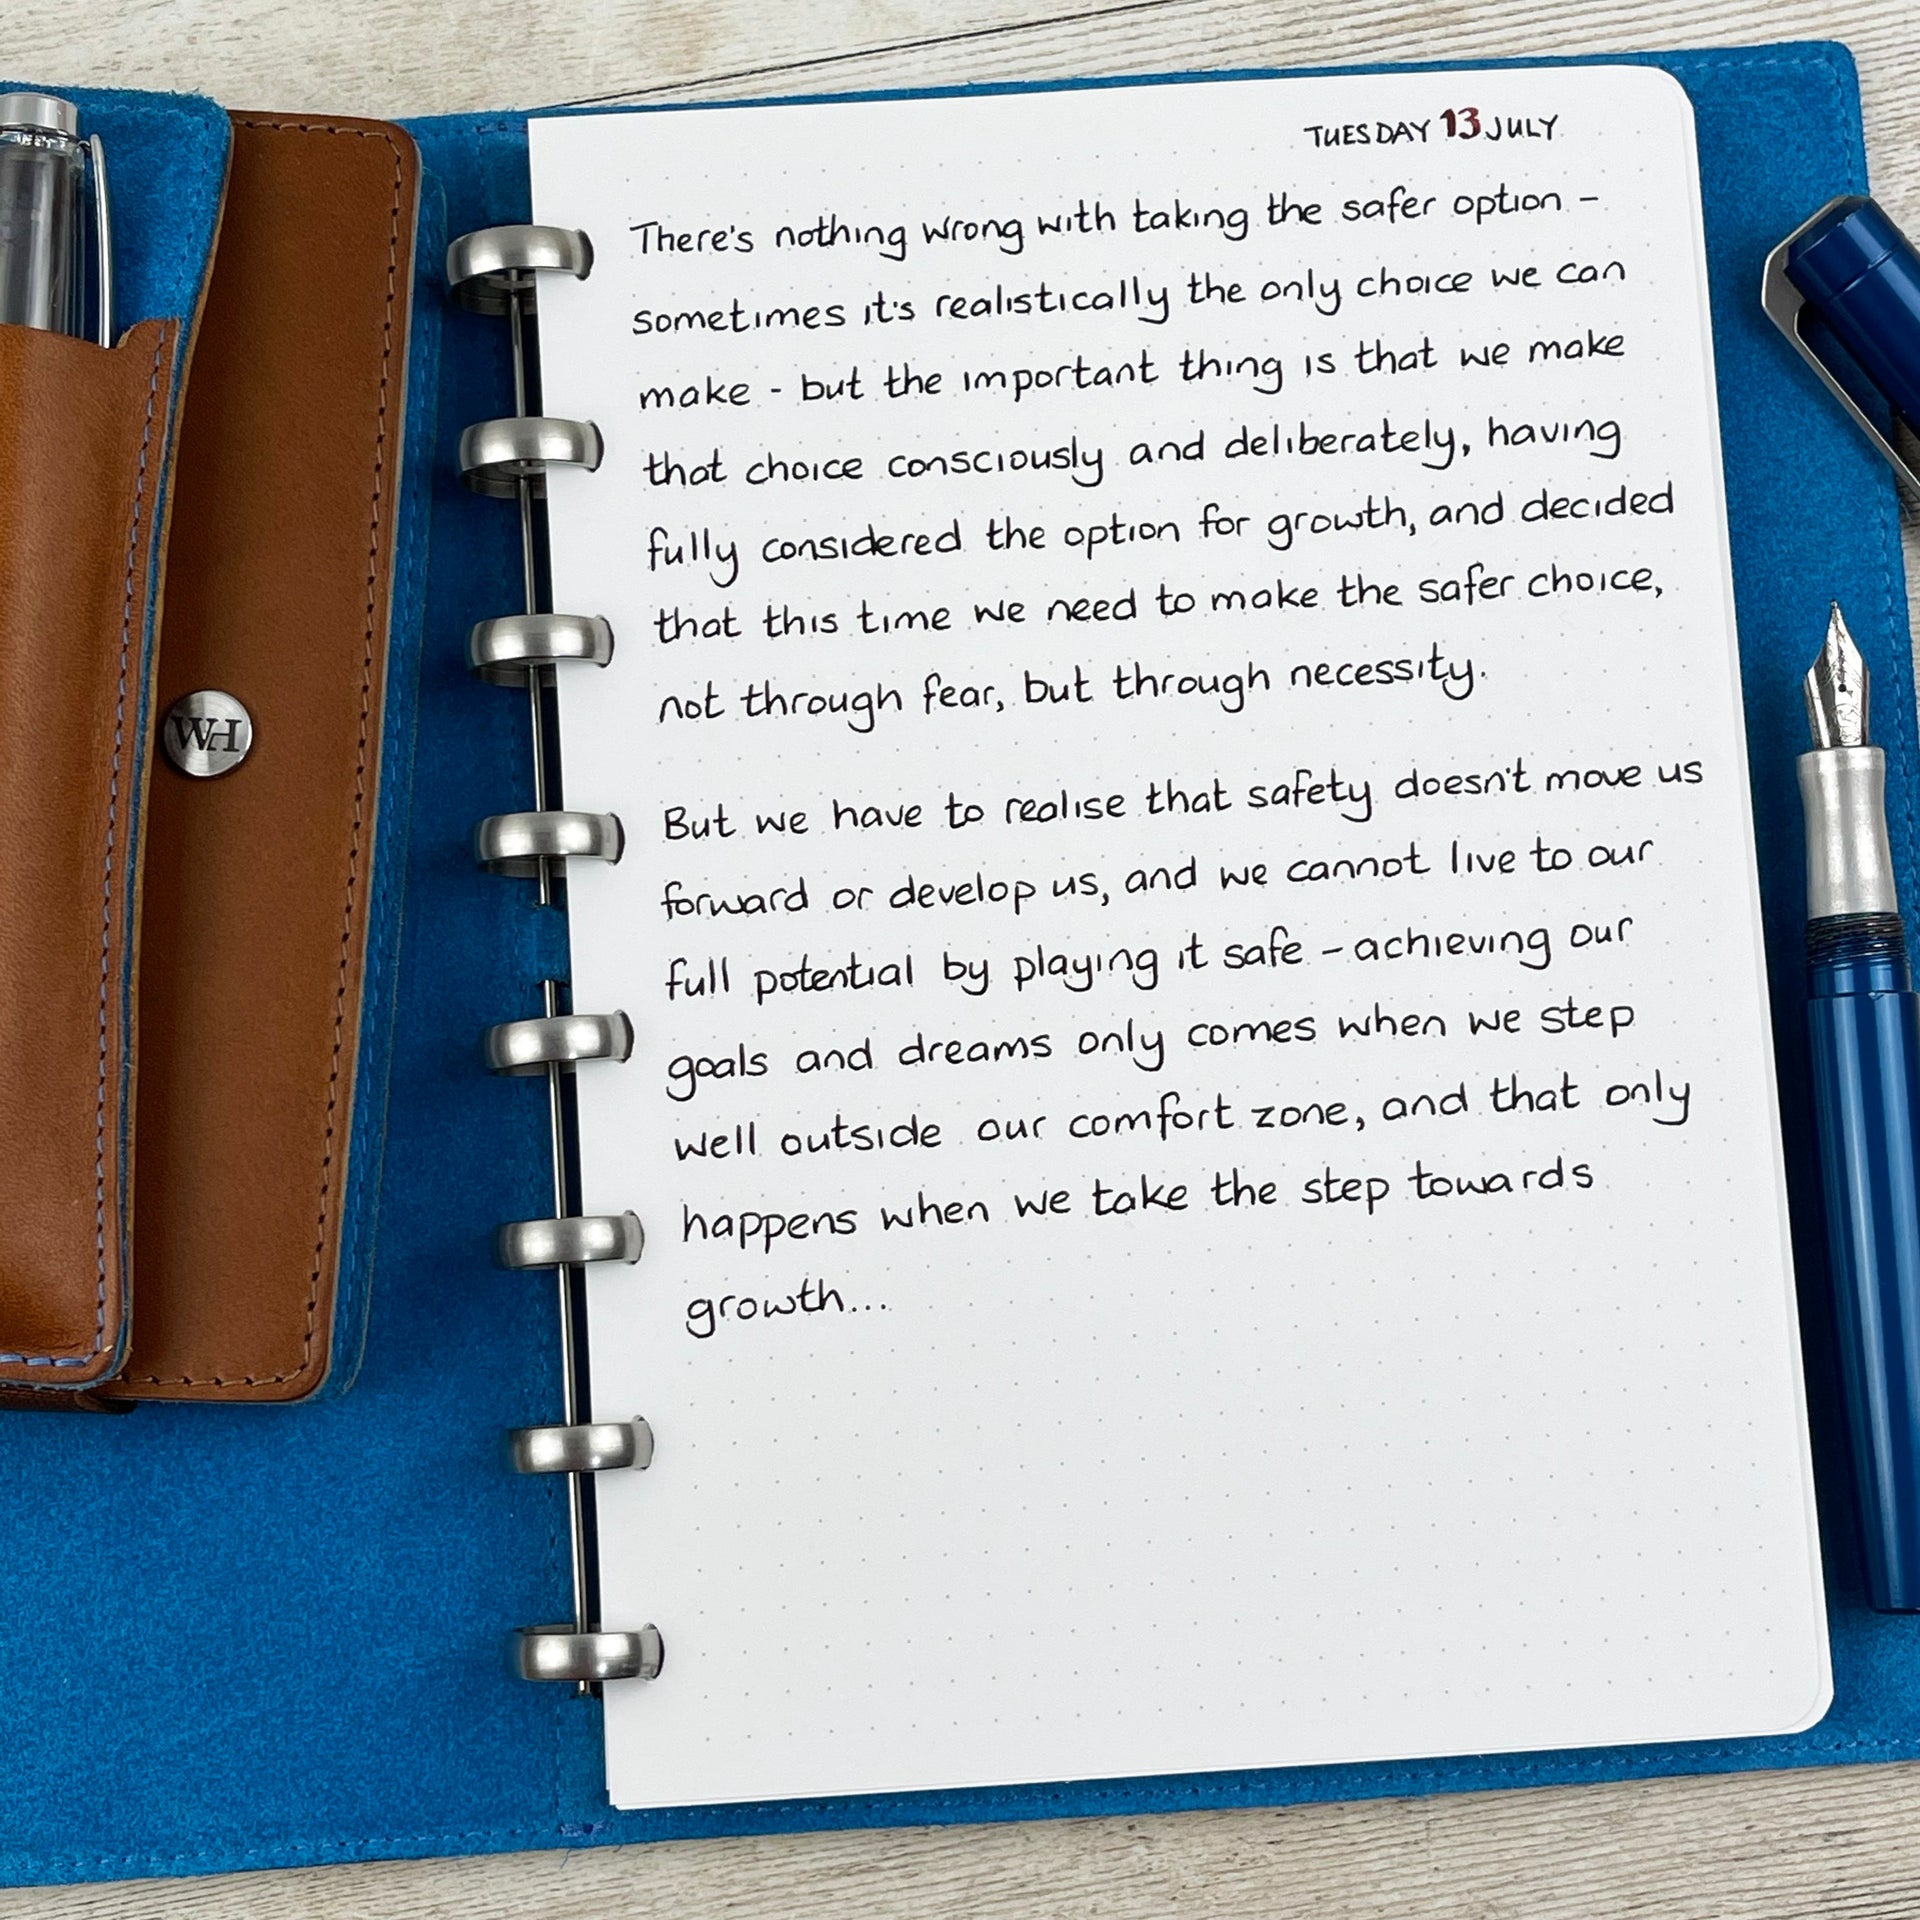 TUESDAY 13 JULY
There's nothing wrong with taking the safer option –
sometimes it's realistically the only choice we can
make - but the important thing is that we make
that choice consciously and deliberately, having
fully considered the option for growth, and decided
that this time we need to make the safer choice,
not through fear, but through necessity.
But we have to realise that safety doesn't move us
forward or develop us, and we cannot live to our
full potential by playing it safe – achieving our
goals and dreams only comes when we step
well outside our comfort zone, and that only
happens when we take the step towards
growth...
WH